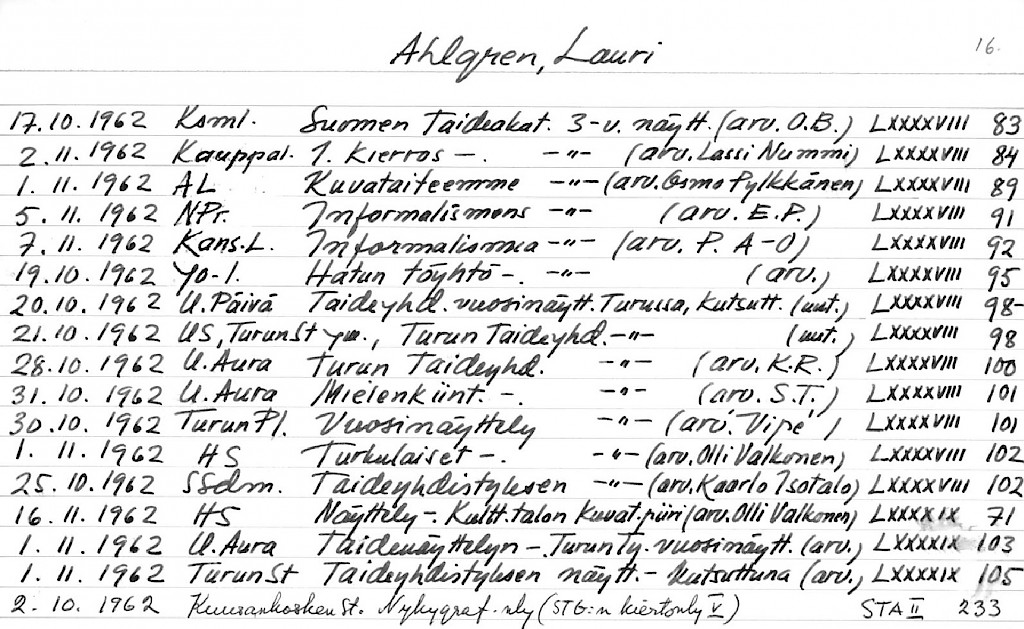 Ahlgren, Lauri 16.
17.10.1962 Ksml. Suomen Taideakat. 3-v. näytt. (arv. O.B.) LXXXXVIII 83
2.11.1962 Kauppal. 1. kierros –. –"– (arv. Lassi Nummi) LXXXXVIII 84
1.11.1962 AL Kuvataiteemme –"– (arv. Osmo Pylkkänen) LXXXXVIII 89
5.11.1962 NPr. Informalismens –"– (arv. E.P.) LXXXXVIII 91
7.11.1962 Kans.L. Informalismia –"– (arv. P. A-O) LXXXXVIII 92
19.10.1962 Yo-l. Hatun töyhtö –. –"– (arv.) LXXXXVIII 95
20.10.1962 U.Päivä Taideyhd. vuosinäytt. Turussa, kutsutt. (uut.) LXXXXVIII 98-
21.10.1962 US, TurunSt ym., Turun Taideyhd. –"– (uut.) LXXXXVIII 98
28.10.1962 U.Aura Turun Taideyhd. –"– (arv. K.R.) LXXXXVIII 100
31.10.1962 U.Aura Mielenkiint. –. –"– (arv. S.T.) LXXXXVIII 101
30.10.1962 TurunPl. Vuosinäyttely –"– (arv. 'Vipe') LXXXXVIII 101
1.11.1962 HS Turkulaiset –. –"– (arv. Olli Valkonen) LXXXXVIII 102
25.10.1962 SSdm. Taideyhdistyksen –"– (arv. Kaarlo Isotalo) LXXXXVIII 102
16.11.1962 HS Näyttely –. Kultt.talon kuvat.piiri (arv. Olli Valkonen) LXXXXIX 71
1.11.1962 U.Aura Taidenäyttelyn – TurunTy. vuosinäytt. (arv.) LXXXXIX 103
1.11.1962 TurunSt Taideyhdistyksen näytt. – kutsuttuna (arv.) LXXXXIX 105
2.10.1962 Kuusankosken St. Nykygraf. nly (STG:n kiertonly V) STA II 233